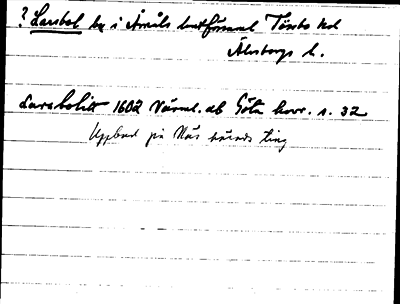 ? Larsbol by i Åmåls landsförsaml Tössbo hd
Älvsborgs l.
Larsbolitt 1602 Värml. ab Göta hovr. s. 32
Uppbud på Näs härads ting